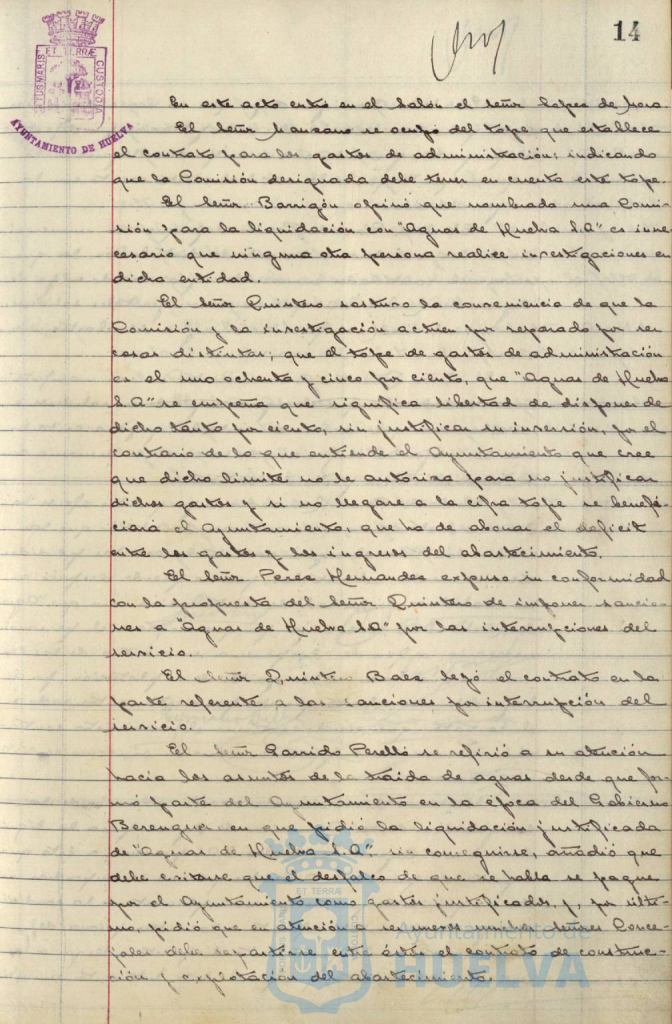 14
PORTUS MARIS ET TERRÆ CUSTODIA
AYUNTAMIENTO DE HUELVA
En este acto entró en el Salón el Señor Lopez de Mora
El Señor Manzano se ocupó del tope que establece
el contrato para los gastos de administración; indicando
que la Comisión designada debe tener en cuenta este tope.
El Señor Barrigón opinó que nombrada una Comi-
sión para la liquidación con "Aguas de Huelva S.A" es inne-
cesario que ninguna otra persona realice investigaciones en
dicha entidad.
El Señor Quintero sostuvo la conveniencia de que la
Comisión y la investigación actuen por separado por ser
cosas distintas; que el tope de gastos de administración
es el uno ochenta y cinco por ciento, que "Aguas de Huelva
S.A" se empeña que significa libertad de disponer de
dicho tanto por ciento, sin justificar su inversión, por el
contrario de lo que entiende el Ayuntamiento que cree
que dicho limite no le autoriza para no justificar
dichos gastos y si no llegare a la cifra tope se benefi-
ciará el Ayuntamiento, que ha de abonar el deficit
entre los gastos y los ingresos del abastecimiento.
El Señor Perez Hernandez expuso su conformidad
con la propuesta del Señor Quintero de imponer sancio-
nes a "Aguas de Huelva S.A" por las interrupciones del
servicio.
El Señor Quintero Baez leyó el contrato en la
parte referente a las sanciones por interrupción del
servicio.
El Señor Garrido Perelló se refirió a su atención
hacia los asuntos de la traida de aguas desde que for-
mó parte del Ayuntamiento en la época del Gobierno
Berenguer en que pidió la liquidación justificada
de "Aguas de Huelva S.A", sin conseguirse, añadió que
debe evitarse que el desfalco de que se habla se pague
por el Ayuntamiento como gastos justificados, y, por últi-
mo, pidió que en atención a ser nuevos muchos Señores Conce-
jales debe repartirse entre éstos el contrato de construc-
ción y explotación del abastecimiento.
Ayuntamiento de
HUELVA